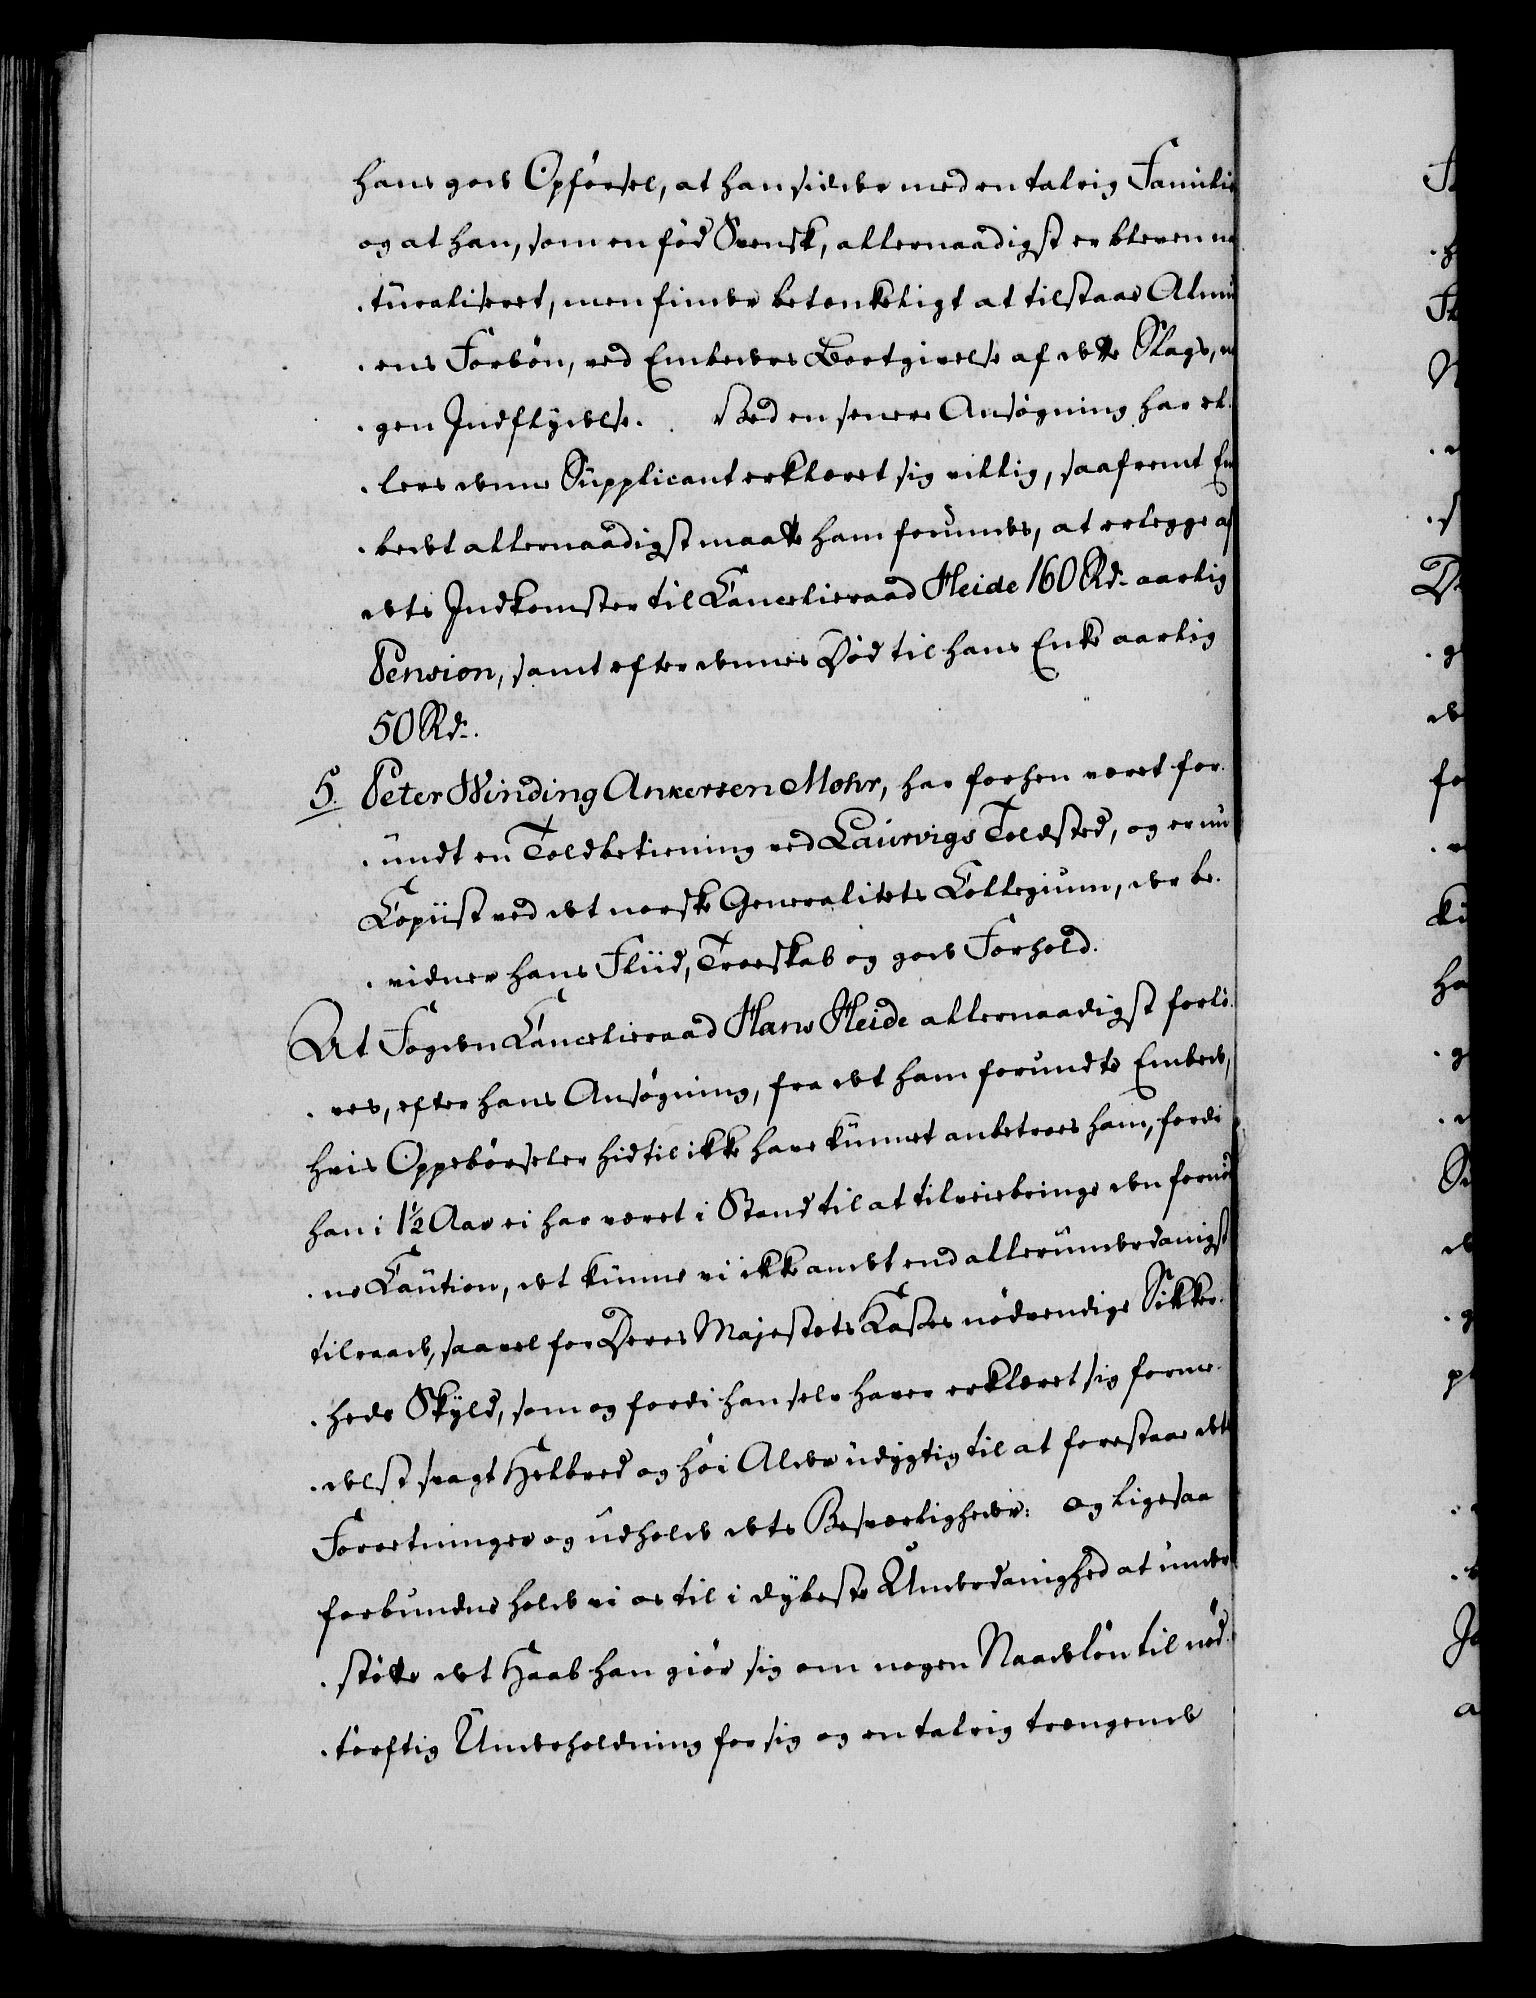 hans gode Opførsel, at han sidder med en talrig Familie
og at han, som en fød Svensk, allernaadigst er bleven na
turaliseret, men finder betænkeligt at tilstaae Almu
ens Forbøn, ved Embeders Bortgivelse af dette Slags, no
gen Indflydelse. Ved en senere Ansøgning har el
lers denne Supplicant erklæret sig villig, saafremt Em
bedet allernaadigst maatte ham forundes, at erlegge af
dets Indkomster til Cancelieraad Heide 160 Rd. aarlig
Pension, samt efter dennes Død til hans Enke aarlig
50 Rd.
5. Peter Winding Ankersen Mohr, har forhen været for
undt en Toldbetiening ved Laurvigs Toldsted, og er nu
Copiist ved det norske Generalitets Collegium, der be
vidner hans Fliid, Troeskab og gode Forhold.
At Fogden Cancelieraad Hans Heide allernaadigst forlø
ves, efter hans Ansøgning, fra det ham forundte Embede,
hvis Oppebørseler hidtil ikke have kunnet anbetroes ham, fordi
han i 1½ Aar ei har været i Stand til at tilveiebringe den fornød
ne Caution, det kunne vi ikke andet end allerunderdanigst
tilraade, saavel for Deres Majestets Kasses nødvendige Sikker
heds Skyld, som og fordi han selv haver erklæret sig forme
delst svagt Helbred og høi Alder udygtig til at forestaae dets
Forretninger og udholde dets Besværligheder: og ligesaa
forbundne holde vi os til i dybeste Underdanighed at under
støtte det Haab han giør sig om nogen Naadeløn til nød
tørftig Underholdning for sig og en talrig trængende